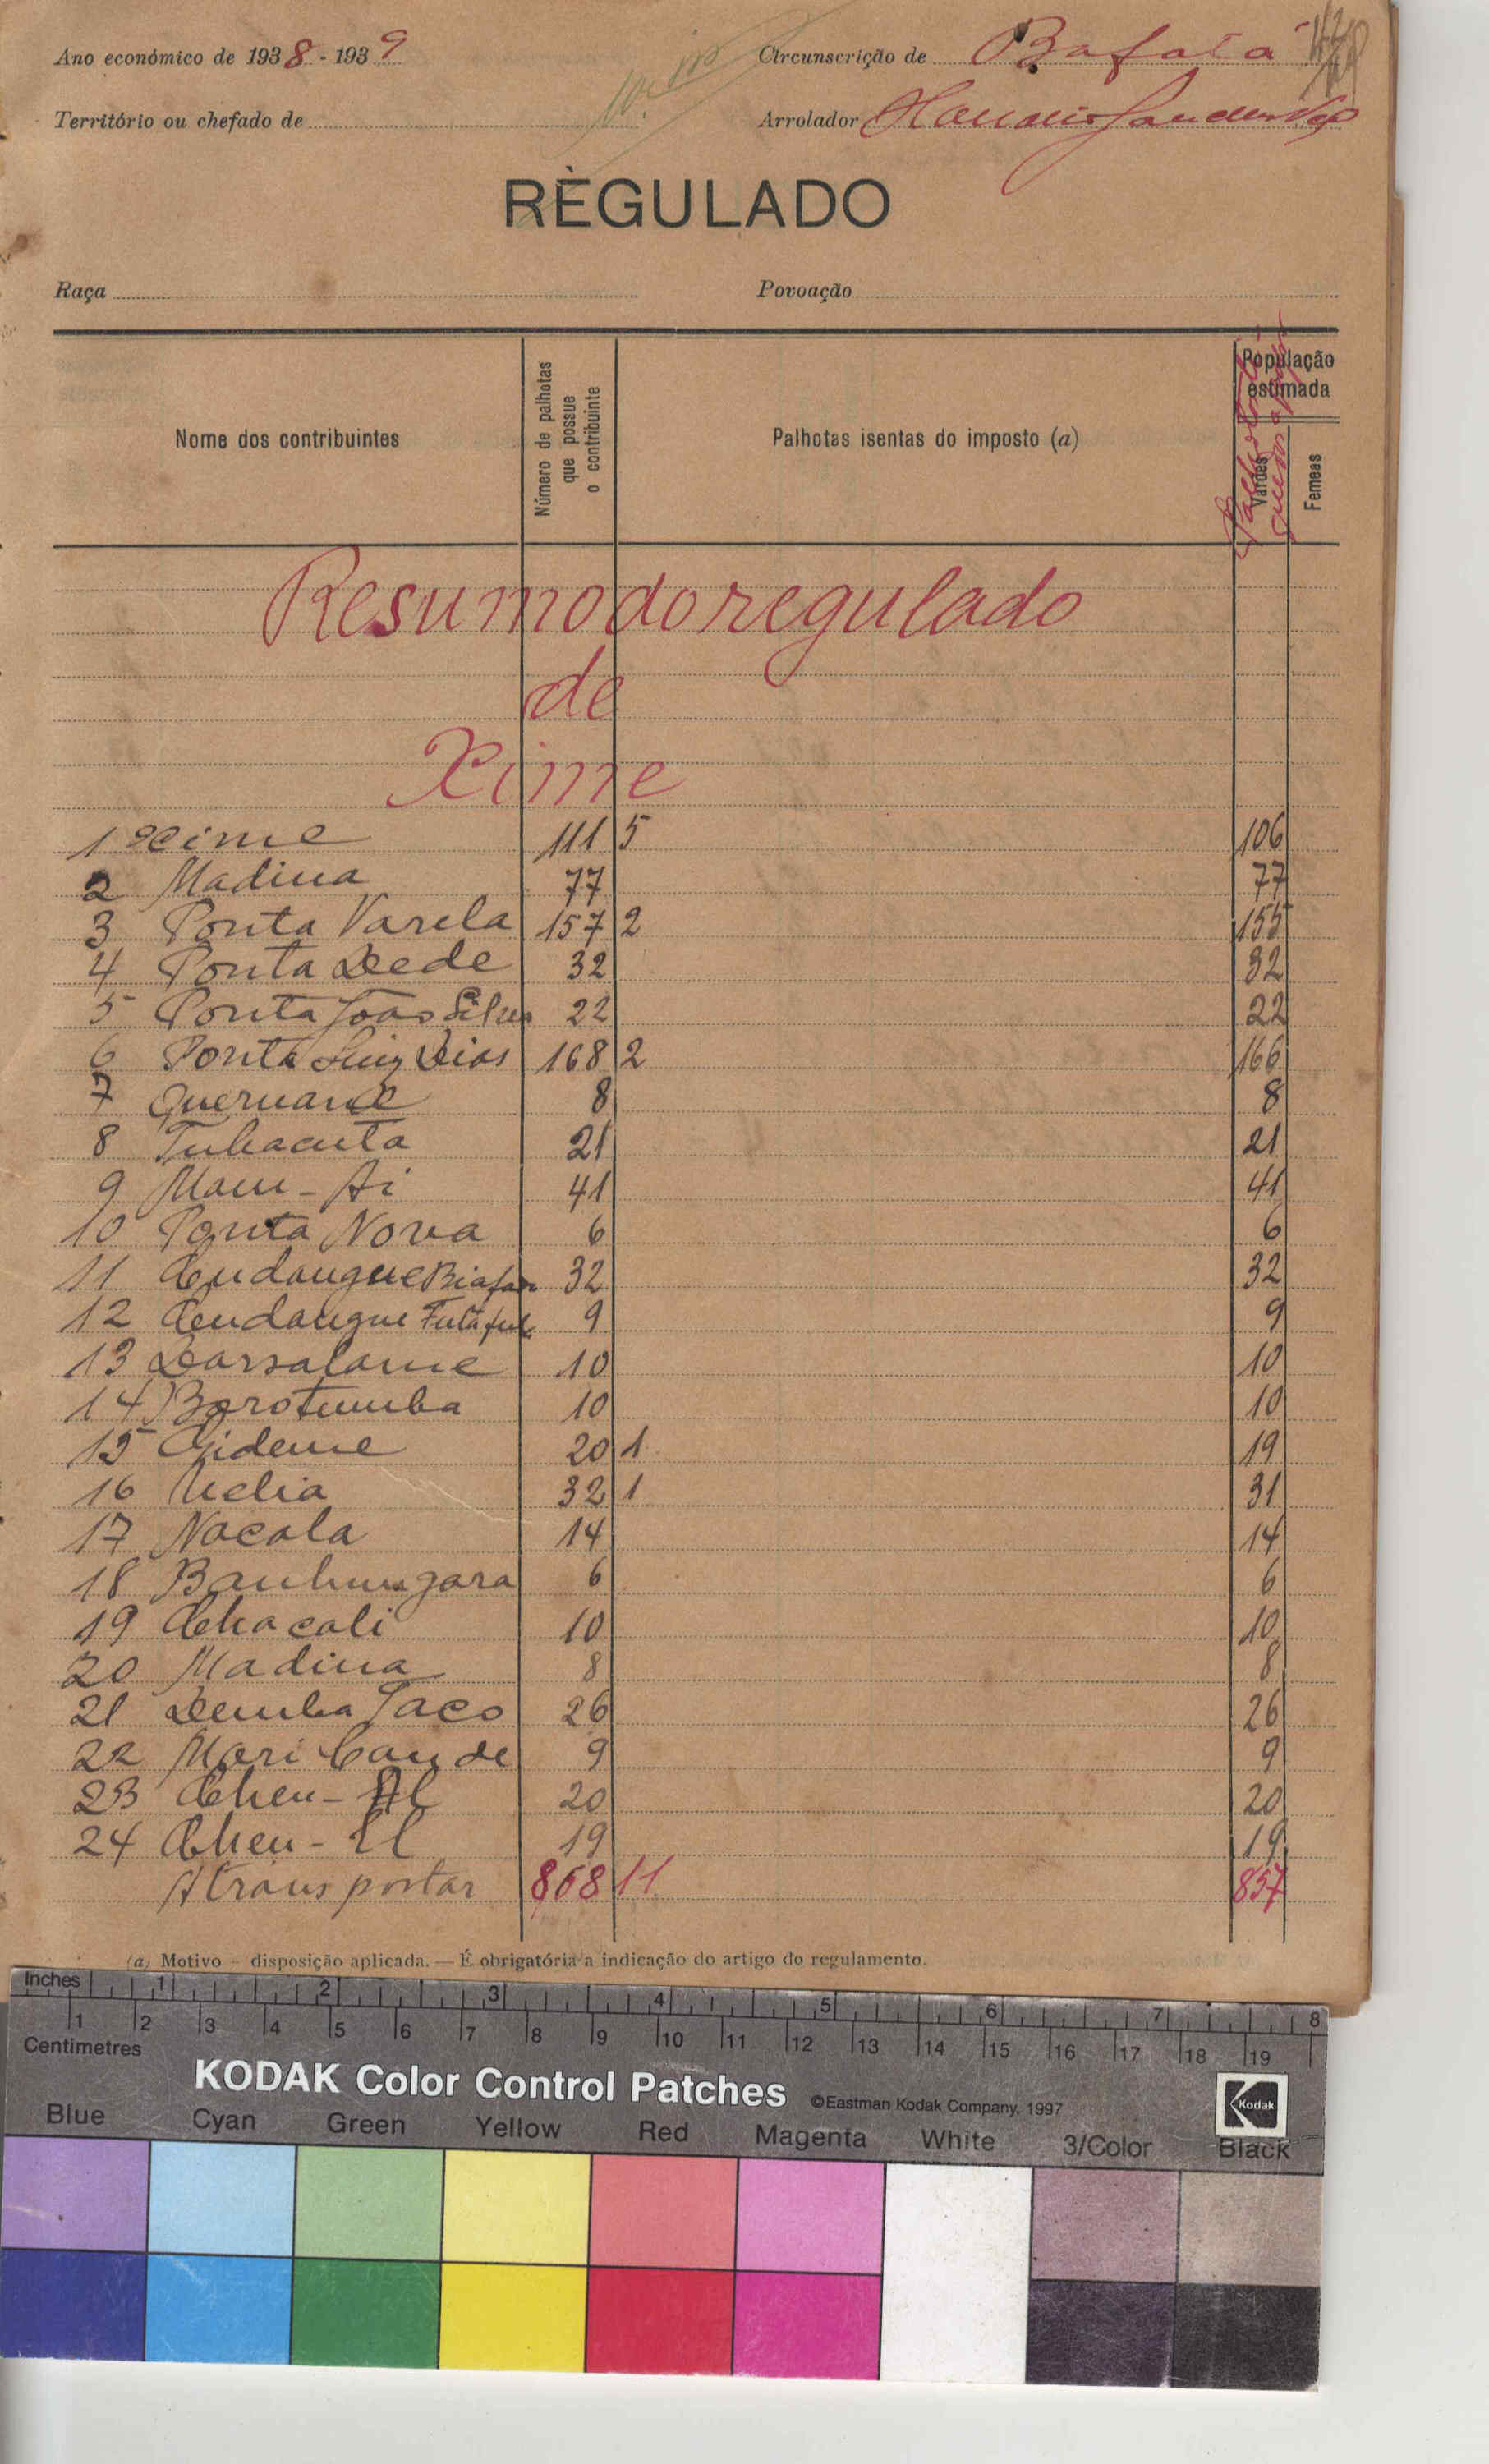 Ano económico de 1938-1939
Circunscrição de Bafatá
Território ou chefado de
Arrolador
REGULADO
Raça
Povoação
Nome dos contribuintes
Número de palhotas que possue o contribuinte
Palhotas isentas do imposto (a)
População estimada
Varões
Femeas
Resumo do regulado
de
Xime
1 Xime 111 5 106
2 Madina 77 77
3 Ponta Varela 157 2 155
4 Ponta Dede 32 32
5 Ponta João Silva 22 22
6 Ponta Luiz Dias 168 2 166
7 8 8
8 Tubacuta 21 21
9 Mam-Ai 41 41
10 Ponta Nova 6 6
11 32 32
12 9 9
13 Darsalame 10 10
14 10 10
15 Gideme 20 1 19
16 32 1 31
17 Nacala 14 14
18 6 6
19 Chacali 10 10
20 Madina 8 8
21 Demba Taco 26 26
22 Mari 9 9
23 20 20
24 19 19
A transportar 868 11 857
(a) Motivo - disposição aplicada. — É obrigatória a indicação do artigo do regulamento.
Inches 1 2 3 4 5 6 7 8
1 2 3 4 5 6 7 8 9 10 11 12 13 14 15 16 17 18 19
Centimetres
KODAK Color Control Patches ©Eastman Kodak Company, 1997 Kodak
Blue Cyan Green Yellow Red Magenta White 3/Color Black